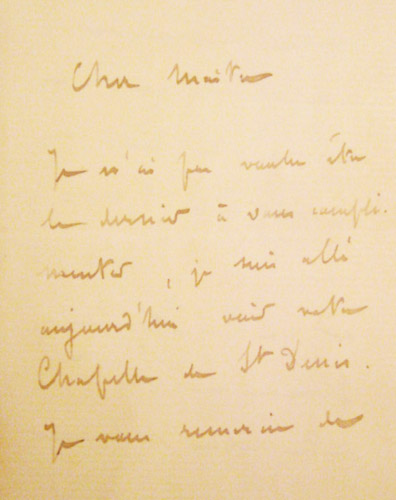 Cher Maitre
Je n'ai pas voulu être
le dernier à vous compli-
menter, je suis allé
aujourd'hui voir votre
Chapelle de St Denis.
Je vous remercie de